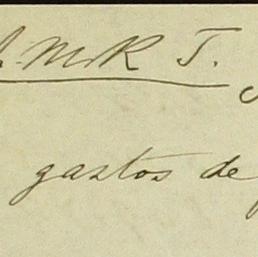 M. R T.
gastos de